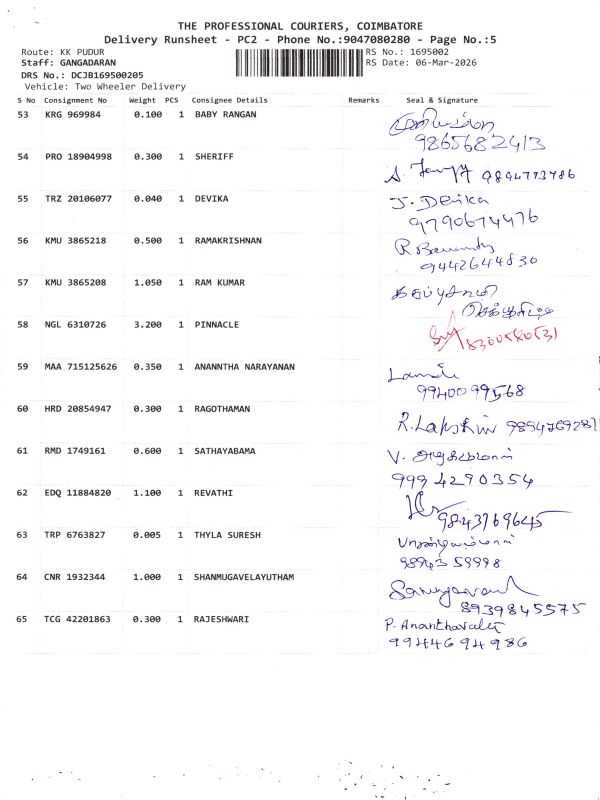 THE PROFESSIONAL COURIERS, COIMBATORE
Delivery Runsheet - PC2 - Phone No.:9047080280 - Page No.:5
Route: KK PUDUR RS No.: 1695002
Staff: GANGADARAN RS Date: 06-Mar-2026
DRS No.: DCJB169500205
Vehicle: Two Wheeler Delivery
S No Consignment No Weight PCS Consignee Details Remarks Seal & Signature
53 KRG 969984 0.100 1 BABY RANGAN
9865682413
54 PRO 18904998 0.300 1 SHERIFF
9894773486
55 TRZ 20106077 0.040 1 DEVIKA J. Devika
9790674476
56 KMU 3865218 0.500 1 RAMAKRISHNAN
9442644830
57 KMU 3865208 1.050 1 RAM KUMAR
58 NGL 6310726 3.200 1 PINNACLE
59 MAA 715125626 0.350 1 ANANNTHA NARAYANAN
9940099568
60 HRD 20854947 0.300 1 RAGOTHAMAN
61 RMD 1749161 0.600 1 SATHAYABAMA
9994290354
62 EDQ 11884820 1.100 1 REVATHI
9843769645
63 TRP 6763827 0.005 1 THYLA SURESH
64 CNR 1932344 1.000 1 SHANMUGAVELAYUTHAM
8939845575
65 TCG 42201863 0.300 1 RAJESHWARI
9944694986